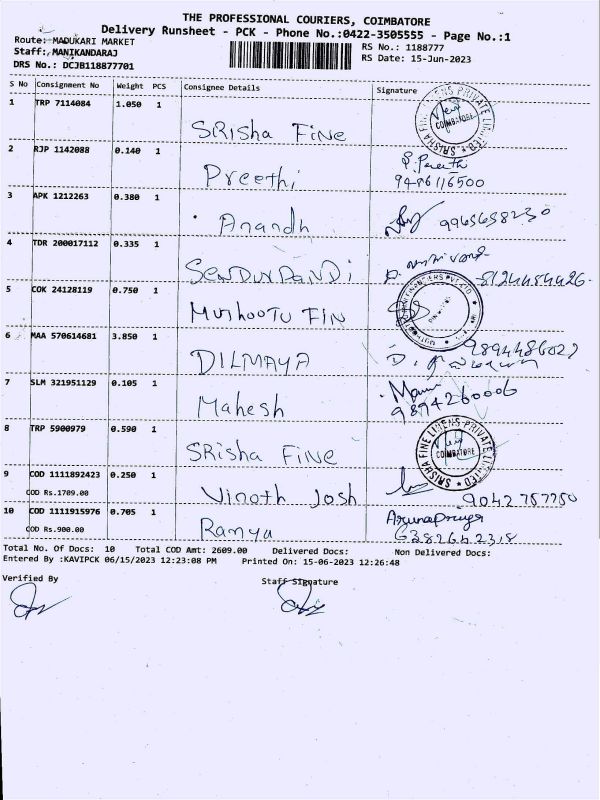 THE PROFESSIONAL COURIERS, COIMBATORE
Delivery Runsheet - PCK - Phone No.:0422-3505555 - Page No.:1
Route: MADUKARI MARKET
RS No.: 1188777
Staff: MANIKANDARAJ
RS Date: 15-Jun-2023
DRS No.: DCJB118877701
S No Consignment No Weight PCS Consignee Details Signature
1 TRP 7114084 1.050 1
SRisha Fine
SRISHA FINE LINENS PRIVATE LIMITED COIMBATORE
2 RJP 1142088 0.140 1
Preethi
9486116500
3 APK 1212263 0.380 1
Anandh 9965658230
4 TDR 200017112 0.335 1
SENDURPANDI 8124484426
5 COK 24128119 0.750 1
MUTHOOTU FIN
6 MAA 570614681 3.850 1
DILMAYA 9894486027
7 SLM 321951129 0.105 1
Mahesh 9894260006
8 TRP 5900979 0.590 1
SRisha FiNE
SRISHA FINE LINENS PRIVATE LIMITED COIMBATORE
9 COD 1111892423 0.250 1
COD Rs.1709.00
Vinoth Josh 9042757750
10 COD 1111915976 0.705 1
COD Rs.900.00
Ramya
Arunapriya
6382642318
Total No. Of Docs: 10 Total COD Amt: 2609.00 Delivered Docs: Non Delivered Docs:
Entered By :KAVIPCK 06/15/2023 12:23:08 PM Printed On: 15-06-2023 12:26:48
Verified By Staff Signature